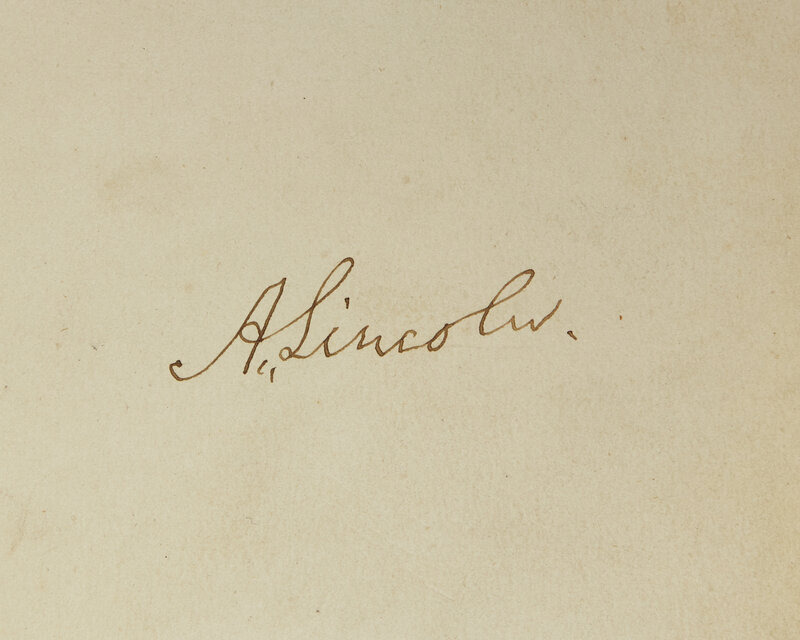 A,, Lincoln.